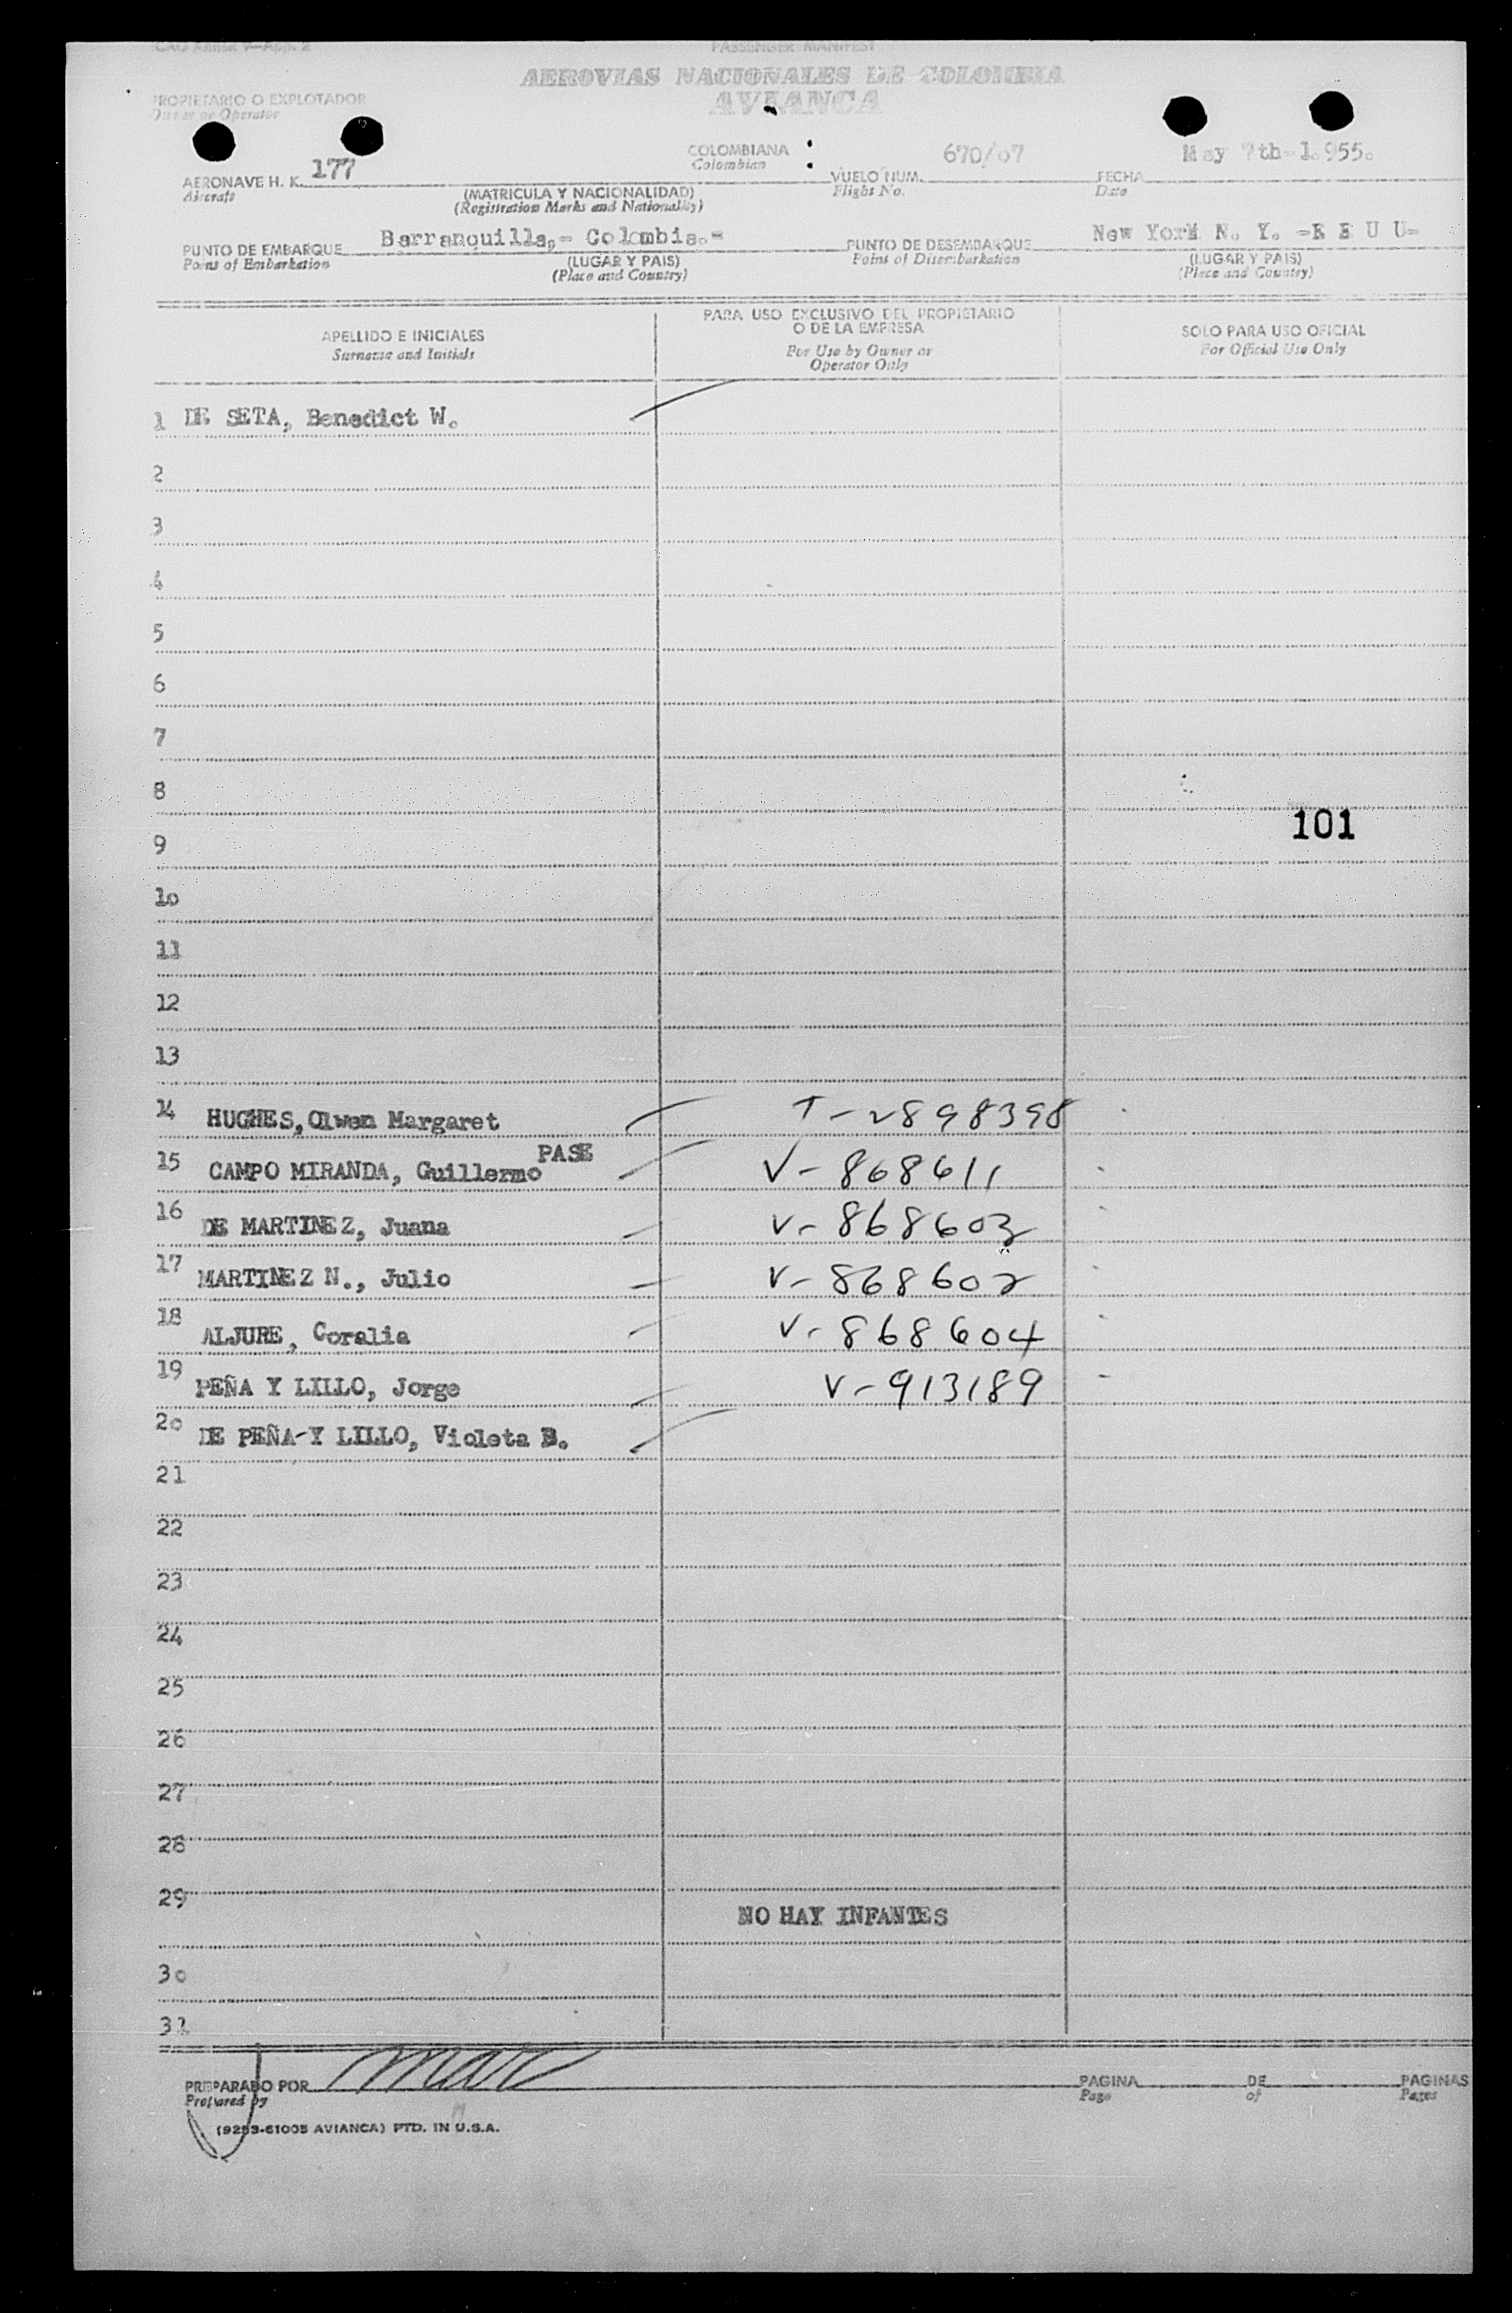 ICAO Annex 9—App. 2
PASSENGER MANIFEST
AEROVIAS NACIONALES DE COLOMBIA
AVIANCA
PROPIETARIO O EXPLOTADOR
Owner or Operator
AERONAVE H. K. 177
Aircraft
(MATRICULA Y NACIONALIDAD)
(Registration Marks and Nationality)
COLOMBIANA :
Colombian :
VUELO NUM. 670/07
Flight No.
FECHA May 7th-1.955.
Date
PUNTO DE EMBARQUE Barranquilla,= Colombia.=
Point of Embarkation
(LUGAR Y PAIS)
(Place and Country)
PUNTO DE DESEMBARQUE New York N. Y. =E E U U=
Point of Disembarkation
(LUGAR Y PAIS)
(Place and Country)
APELLIDO E INICIALES
Surname and Initials
PARA USO EXCLUSIVO DEL PROPIETARIO
O DE LA EMPRESA
For Use by Owner or
Operator Only
SOLO PARA USO OFICIAL
For Official Use Only
1 DE SETA, Benedict W.
2
3
4
5
6
7
8
101
9
10
11
12
13
14 HUGHES, Olwen Margaret T-2898398
15 CAMPO MIRANDA, Guillermo PASE V-868611
16 DE MARTINEZ, Juana V-868603
17 MARTINEZ N., Julio V-868602
18 ALJURE, Coralia V-868604
19 PEÑA Y LILLO, Jorge V-913189
20 DE PEÑA-Y LILLO, Violeta B.
21
22
23
24
25
26
27
28
29
NO HAY INFANTES
30
31
PREPARADO POR
Prepared by
PAGINA DE PAGINAS
Page of Pages
(9253-61005 AVIANCA) PTD. IN U.S.A.